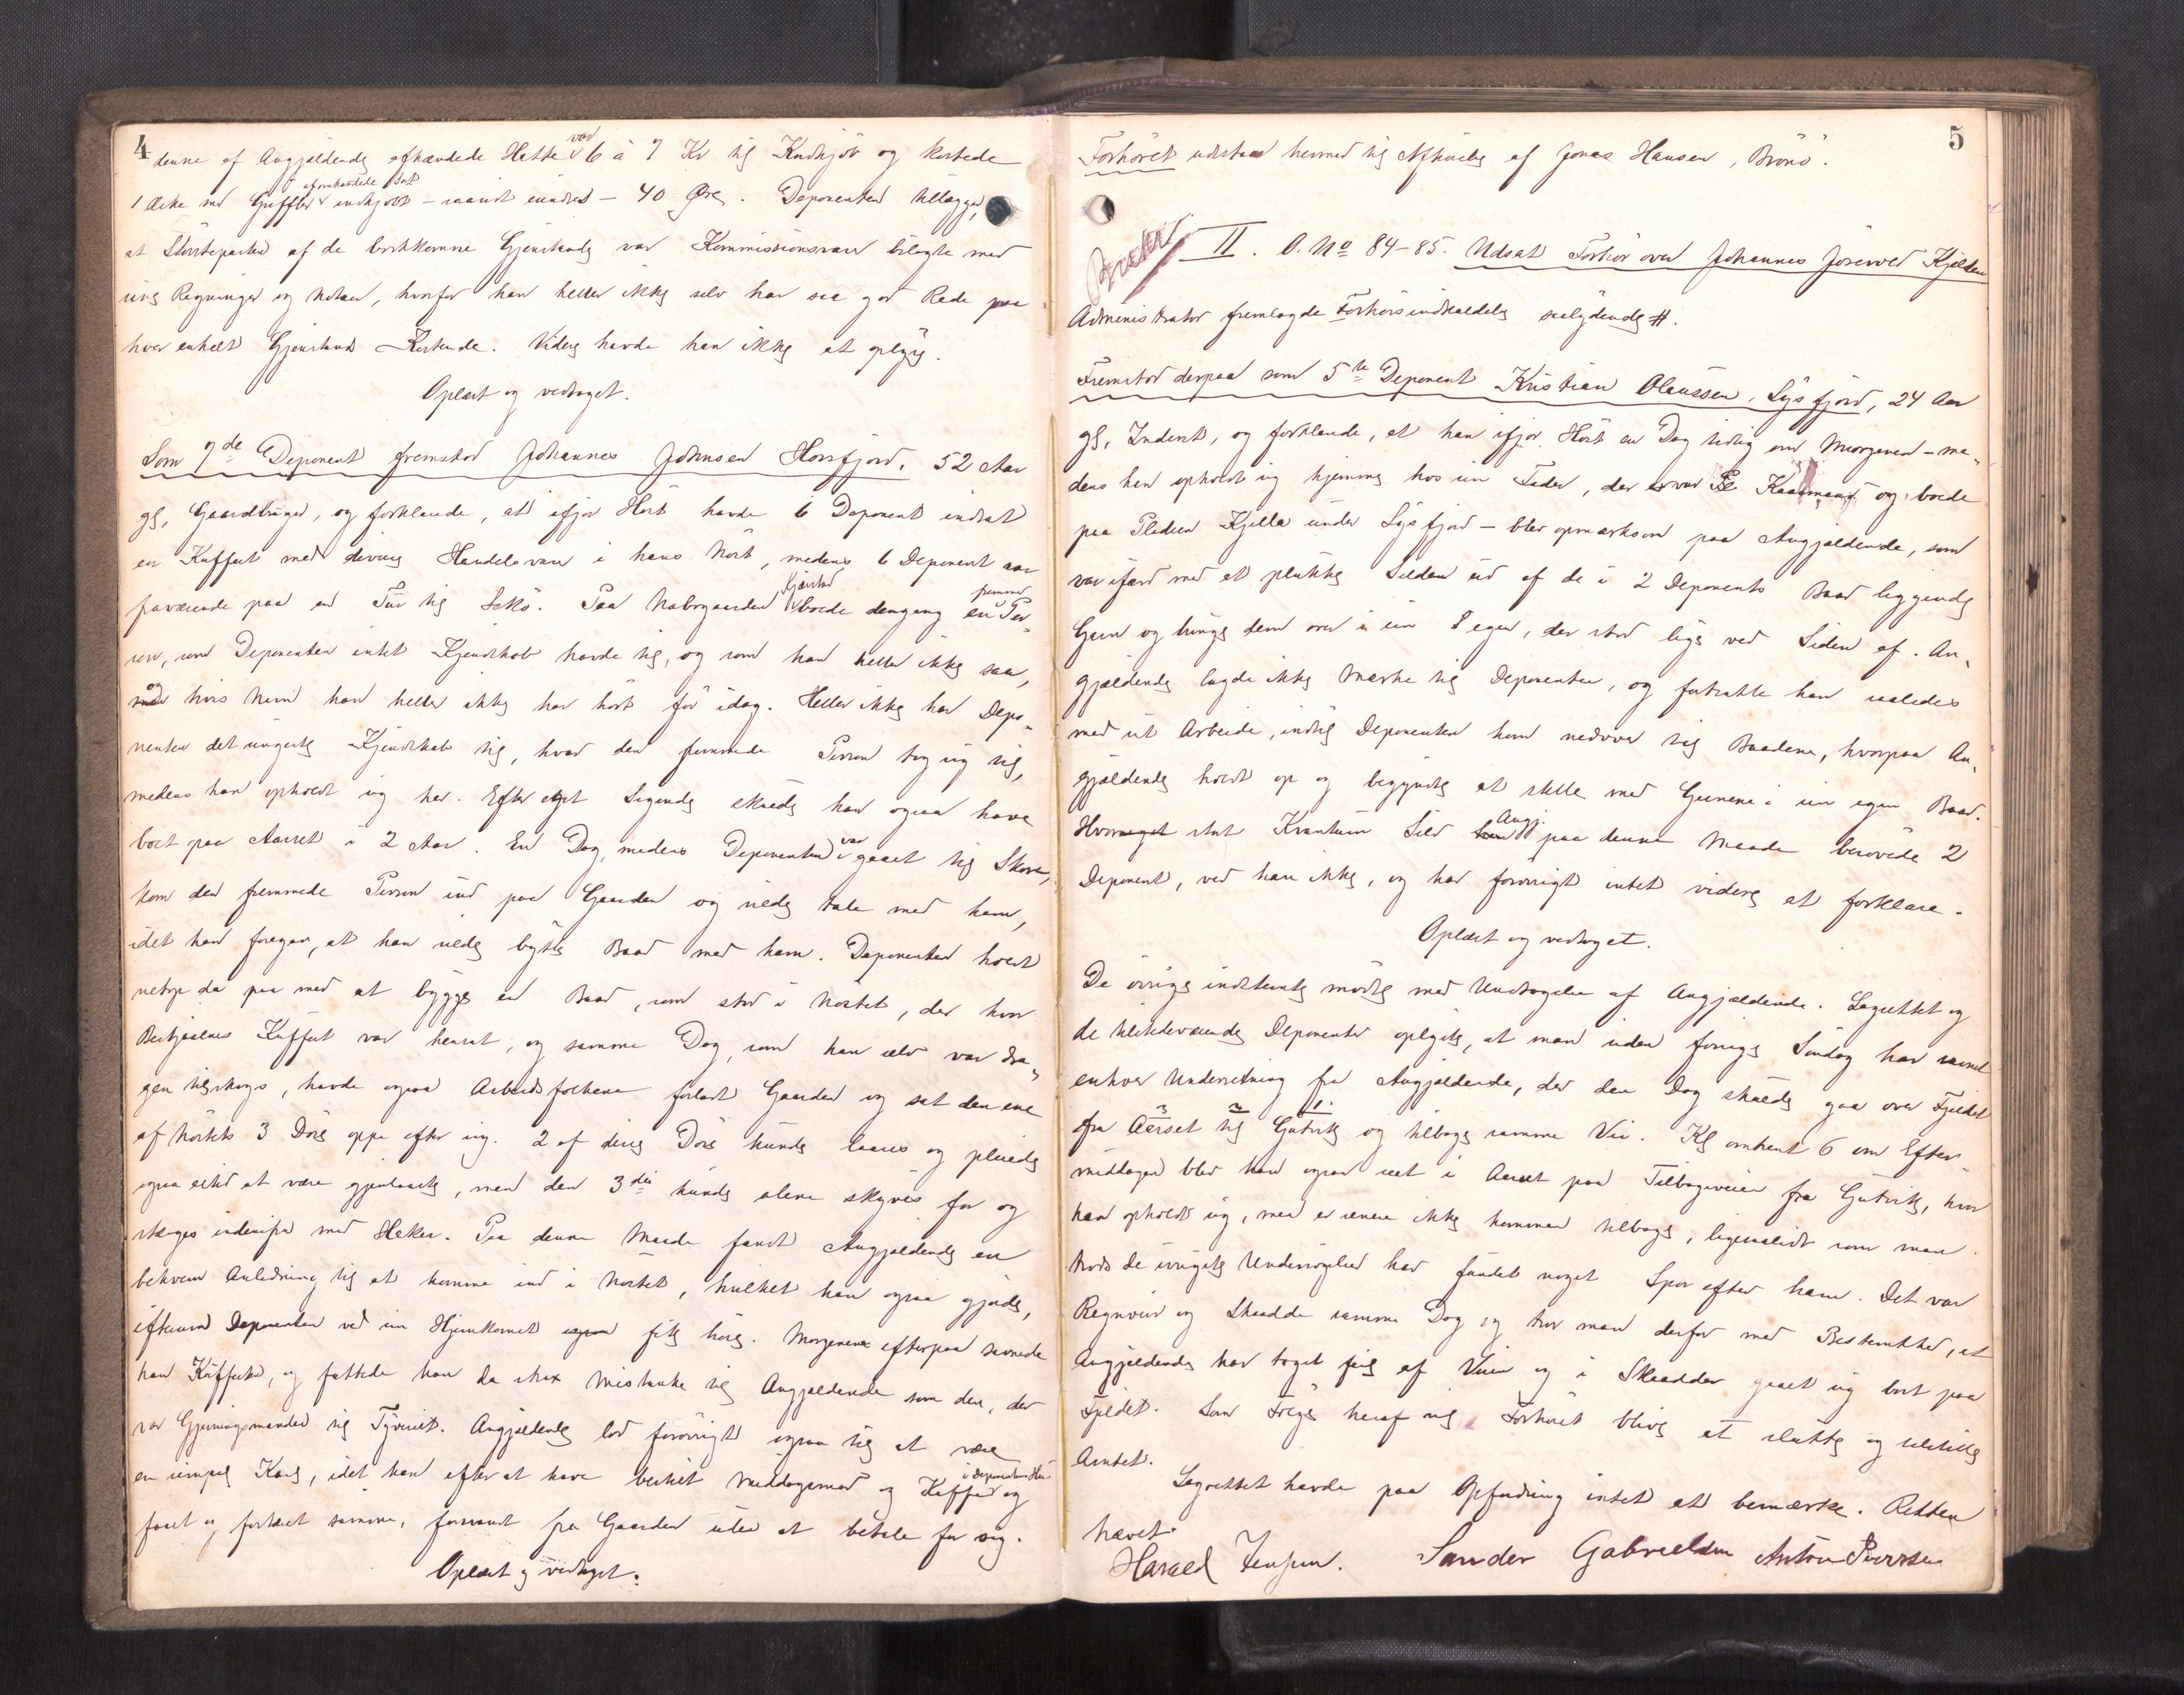 4
denne af Angjældende afhændede Hatte var 6 à 7 Kr til Indkjöb og kostede
1 Æske med Griffler indkjöbt - saavidt erindres - 40 Øre. Deponenten tillægger,
at Störsteparten af de bortkomne Gjenstande var Kommissionsvarer bilagte med
Regninger og Notaer, hvorfor han heller ikke selv har saa god Rede paa
hver enkelt Gjenstands Kostende. Videre havde han ikke at oplyse.
Oplæst og vedtaget.
Som 7de Deponent fremstod Johannes Johnsen Horsfjord, 52 Aar
gl, Gaardbruger, og forklarede, at ifjor Höst havde 6 Deponent indsat
en Kuffert med diverse Handelsvarer i hans Nöst, medens 6 Deponent var
fraværende paa en Tur til Lekö. Paa Nabogaarden boede dengang en fremmed Per-
son, som Deponenten intet Kjendskab havde til, og som han heller ikke saa,
og hvis Navn han heller ikke har hört för idag. Heller ikke har Depo-
nenten det ringeste Kjendskab til, hvad den fremmede Person tog sig til,
medens han opholdt sig her. Efter eget Sigende skulde han ogsaa have
boet paa Aarset i 2 Aar. En Dag, medens Deponenten var gaaet til Skoven,
kom den fremmede Person ind paa Gaarden og vilde tale med ham,
idet han foregav, at han vilde bytte Baad med ham. Deponenten holdt
netop da paa med at bygge en Baad, som stod i Nöstet, der hvor
Kuffert var hensat, og samme Dag, som han selv var dra-
gen tilskogs, havde ogsaa Arbeidsfolkene forladt Gaarden og sat den ene
af Nöstets 3 Döre oppe efter sig. 2 af disse Döre kunde laases og pleiede
ogsaa altid at være gjenlaaste, men den 3die kunde alene skyves for og
stænges indenfra med Hekter. Paa denne Maade fandt Angjældende en
bekvem Anledning til at komme ind i Nöstet, hvilket han ogsaa gjorde,
eftersom Deponenten ved sin Hjemkomst fik höre. Morgenen efterpaa savnede
han Kufferten, og fattede han da strax Mistanke til Angjældende som den, der
var Gjerningsmanden til Tyveriet. Angjældende lod forövrigt ogsaa til at være
en simpel Karl, idet han efter at have bestilt Middagsmad og Kaffe i Deponentens Hus og
faaet og fortæret samme, forsvandt fra Gaarden uden at betale for sig.
Oplæst og vedtaget.
5
Forhöret udstaar hermed til Afhörelse af Jonas Hansen, Brönö.
II. O. No 84-85. Udsat Forhör over Johannes Kjelsen
Administrator fremlagde Forhörsindkaldelse saalydende #.
Fremstod derpaa som 5te Deponent Kristian Olaussen, Lysfjord, 24 Aar
gl, Inderst, og forklarede, at han ifjor Höst en Dag tidlig om Morgenen - me-
dens han opholdt sig hjemme hos sin Fader, der var og boede
paa Pladsen Kjella under Lysfjord - blev opmærksom paa Angjældende, som
var ifærd med at plukke Silden ud af de i 2 Deponents Baad liggende
Garn og bringe dem over i sin egen, der stod lige ved Siden af. An-
gjældende lagde ikke Mærke til Deponenten, og fortsatte han saaledes
med sit Arbeide, indtil Deponenten kom nedover til Baadene, hvorpaa An-
gjældende holdt op og begyndte at stelle med Garnene i sin egen Baad.
Hvor stort Kvantum Sild Angj. paa denne Maade berövede 2
Deponent, ved han ikke, og har forövrigt intet videre at forklare.
Oplæst og vedtaget.
De övrige indstevnte mödte med Undtagelse af Angjældende. Lagrettet og
de tilstedeværende Deponenter oplyste, at man siden forrige Söndag har savnet
enhver Underretning fra Angjældende, der den Dag skulde gaa over Fjeldet
fra Aarset til Gutvik og tilbage samme Vei. Kl omtrent 6 om Efter-
middagen blev han ogsaa seet i Aarset paa Tilbageveien fra Gutvik, hvor
han opholdt sig, men er senere ikke kommen tilbage, ligesaalidt som man
trods de ivrigste Undersögelser har fundet noget Spor efter ham. Det var
Regnveir og Skaadde samme Dag og tror man derfor med Bestemthed, at
Angjældende har taget feil af Veien og i Skaadden gaaet sig bort paa
Fjeldet. Som Fölge heraf vil Forhöret blive at slutte og tilstille
Amtet.
Lagrettet havde paa Opfordring intet at bemærke. Retten
hævet.
Harald Jensen. Sander Gabrielsen Anton Sivertsen